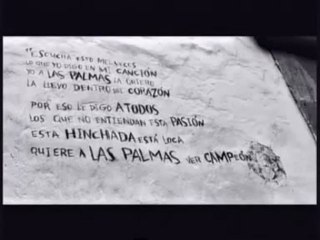 "ESCUCHA ESTO MIL VECES
LO QUE YO DIGO EN MI CANCIÓN
YO A LAS PALMAS LA QUIERO
LA LLEVO DENTRO DEL CORAZÓN
POR ESO LE DIGO A TODOS
LOS QUE NO ENTIENDAN ESTA PASIÓN
ESTA HINCHADA ESTÁ LOCA
QUIERE A LAS PALMAS VER CAMPEÓN